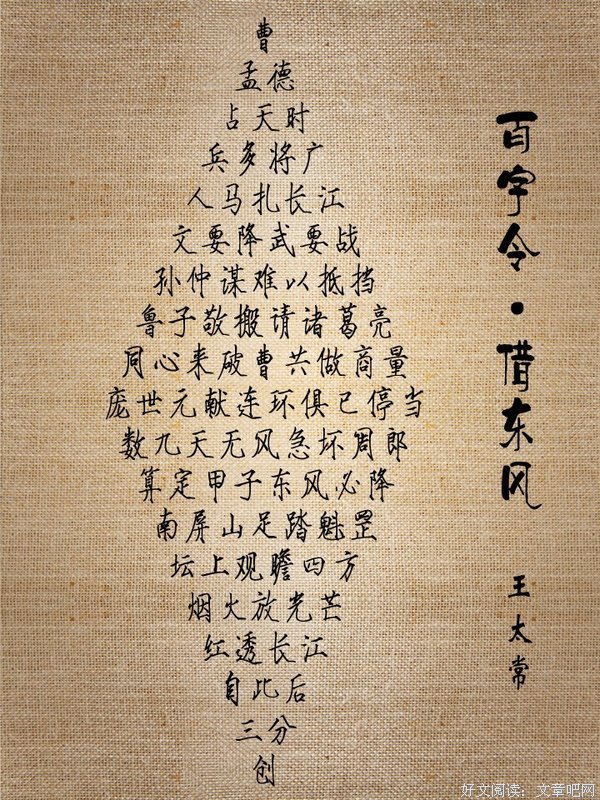 百字令·借东风
王太常
曹
孟德
占天时
兵多将广
人马扎长江
文要降武要战
孙仲谋难以抵挡
鲁子敬搬请诸葛亮
同心来破曹共做商量
庞世元献连环俱已停当
数九天无风急坏周郎
算定甲子东风必降
南屏山足踏魁罡
坛上观瞻四方
烟火放光芒
红透长江
自此后
三分
创
好文阅读：文章吧网